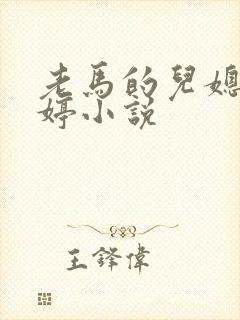 老馬的兒媳
婷小說
王鋒偉